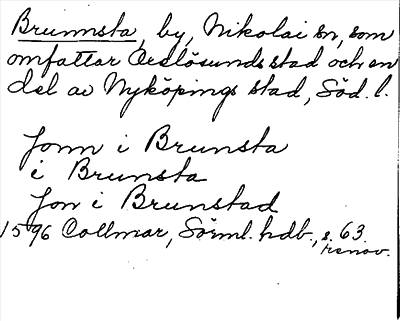 Brunnsta, by, Nikolai sn, som
omfattar Oxelösunds stad och en
del av Nyköpings stad, Söd. l.
Jonn i Brunsta
i Brunsta
Jon i Brunstad
1596 Collmar, Sörml. hdb., s. 63.
renov.